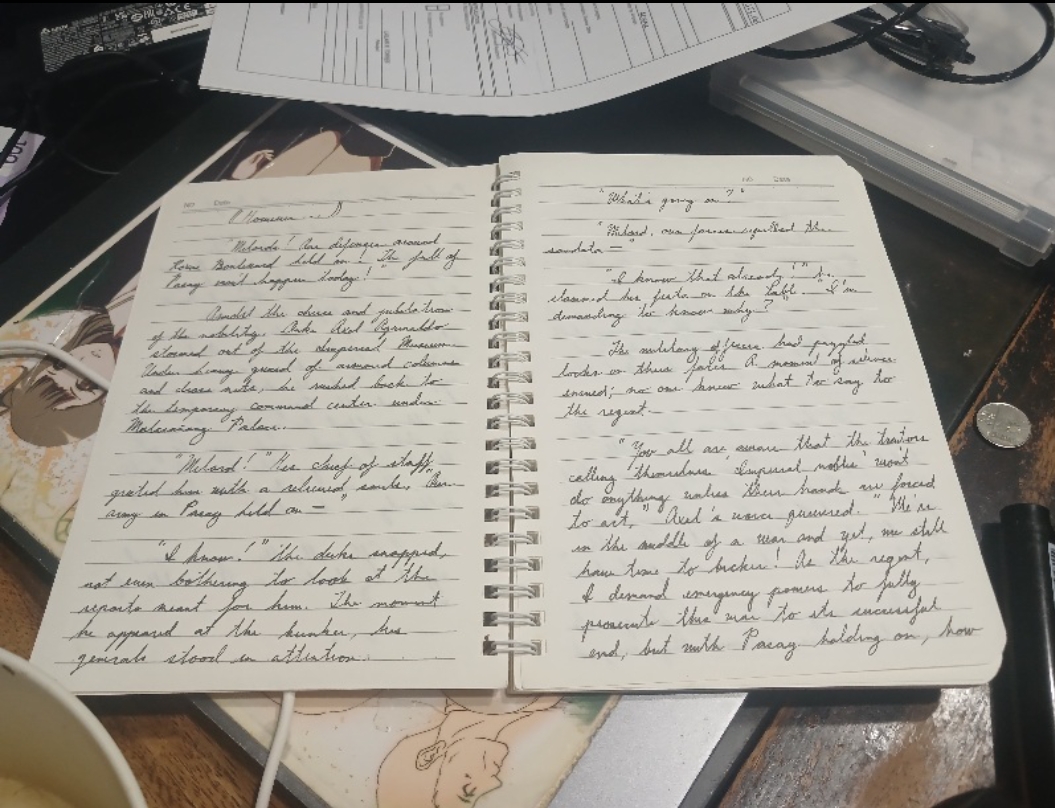 "Milords! Our defenses around
Roxas Boulevard held on! The fall of
Pasay won't happen today!"
Amidst the cheers and jubilation
of the nobility, Duke Axel Aguinaldo
stormed out of the Imperial Museum.
Under heavy guard of armored columns
and close nets, he rushed back to
the temporary command center under
Malacañang Palace.
"Milord!" His chief of staff
greeted him with a relieved smile. "Our
army in Pasay held on —"
"I know!" the duke snapped,
not even bothering to look at the
reports meant for him. The moment
he appeared at the bunker, his
generals stood in attention.
NO. Date
"What's going on?"
"Milord, our forces repelled the
—"
"I know that already!" he
slammed his fists on the table. "I'm
demanding to know why?"
The military officers had
looks on their faces. A moment of silence
ensued; no one knew what to say to
the regent.
"You all are aware that the traitors
calling themselves 'Imperial nobles' won't
do anything unless their hands are forced
to act," Axel's voice quivered. "We're
in the middle of a war and yet, we still
have time to bicker! As the regent,
I demand emergency powers to fully
prosecute this war to its successful
end, but with Pasay holding on, how